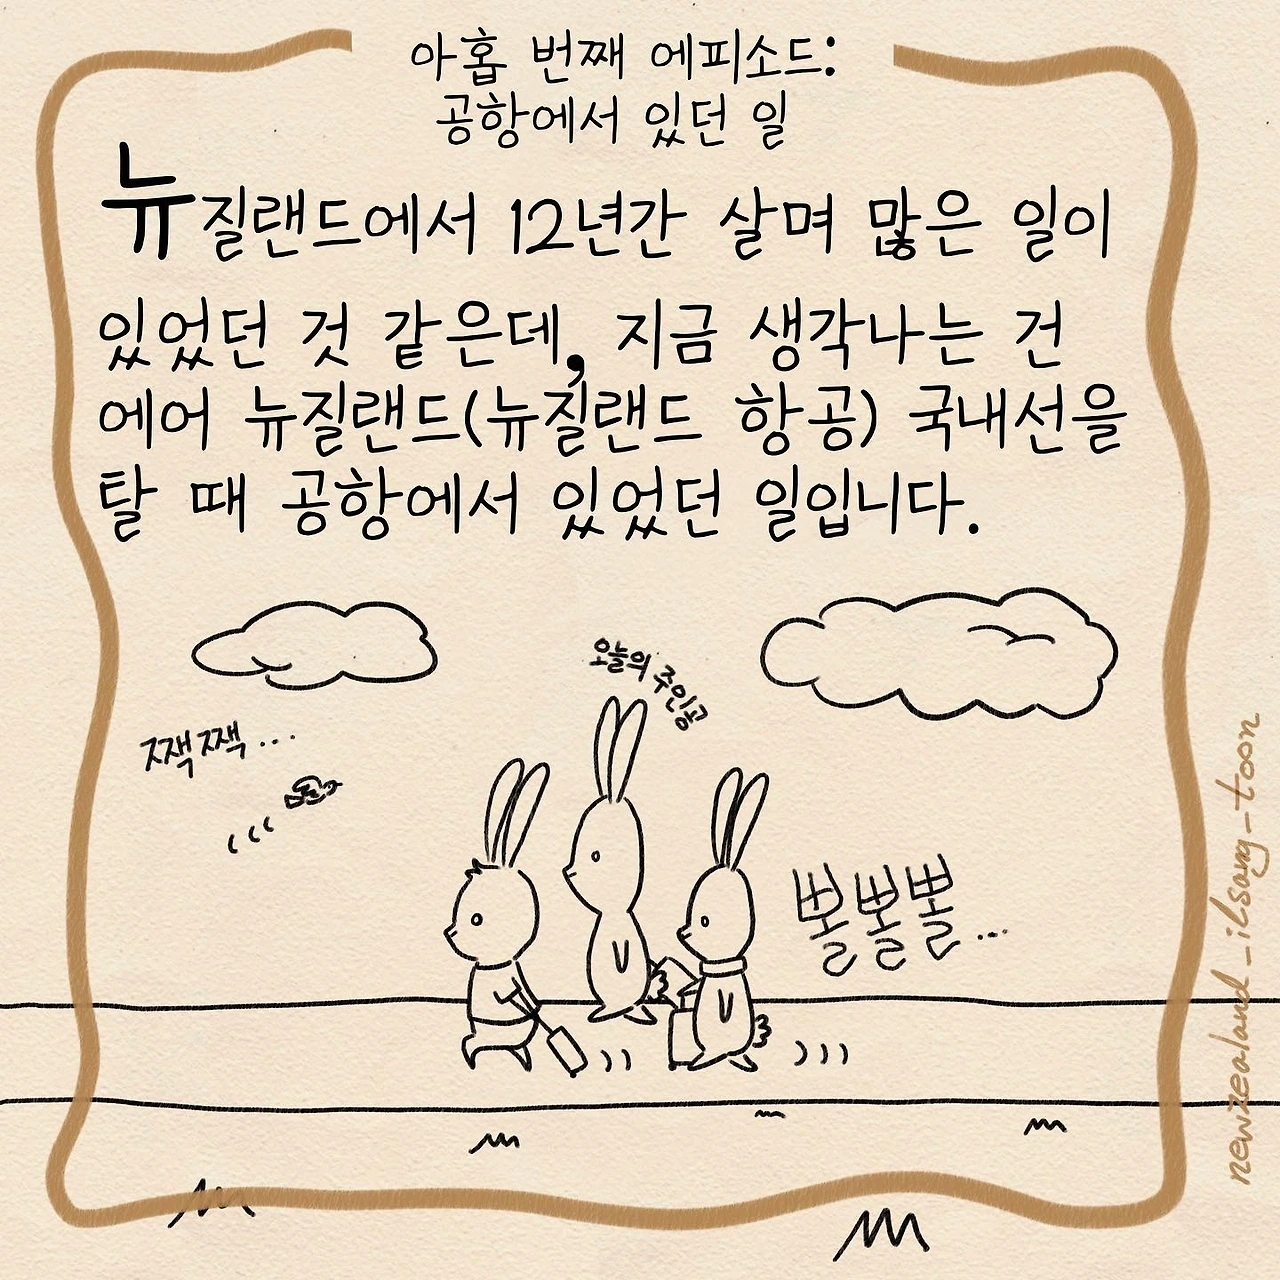 아홉 번째 에피소드:
공항에서 있던 일
뉴질랜드에서 12년간 살며 많은 일이
있었던 것 같은데, 지금 생각나는 건
에어 뉴질랜드(뉴질랜드 항공) 국내선을
탈 때 공항에서 있었던 일입니다.
오늘의 주인공
짹짹...
뽈뽈뽈...
newzealand_ilsang_toon